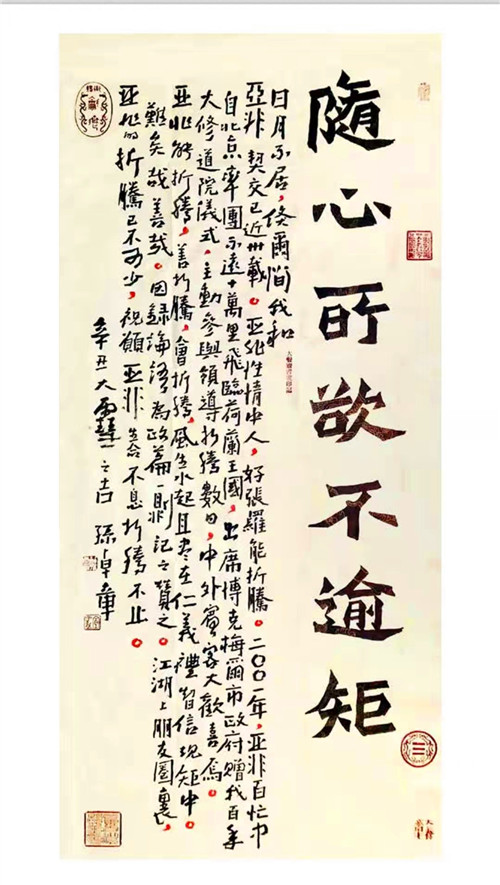 隨心所欲不逾矩
日月不居，倏爾間我和
亞非契交已近卅載。亚非性情中人，好張羅能折騰。二〇〇一年，亚非百忙中
自北京率團不遠十萬里飛臨荷蘭王國，出席博克梅爾市政府贈我百年
大修道院儀式，主動參與領導折騰數日，中外賓客大歡喜焉。
亚非能折騰，善折騰，會折騰，風生水起且盡在仁義禮智信規矩中。
難矣哉善哉。因錄論語為政篇一則記之贊之。江湖上朋友圈裏，
亚非的折騰已不可少，祝願亚非生命不息折騰不止。
辛丑大雪之吉 孫卓章